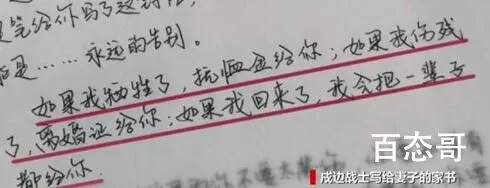 笔给你写了这封
是……永远的告别。
如果我牺牲了，抚恤金给你；如果我伤残
了，离婚证给你；如果我回来了，我会把一辈子
都给你.
百态哥
戍边战士写给妻子的家书